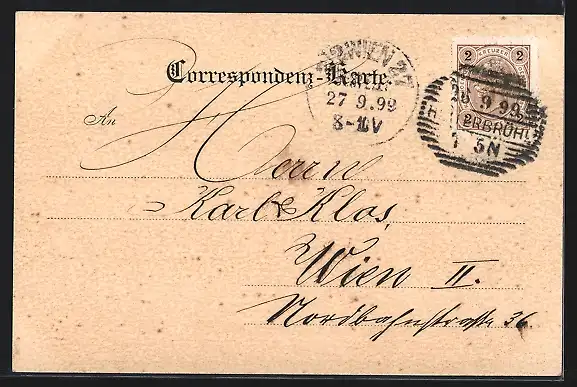 Correspondenz-Karte.
WIEN 2/2
27 9.99
8-10V
2 KREUZER 2
26 9 99
ERBRÜHL
5N
An
Herrn
Karl Klos,
Wien II.
Nordbahnstrasse 36.